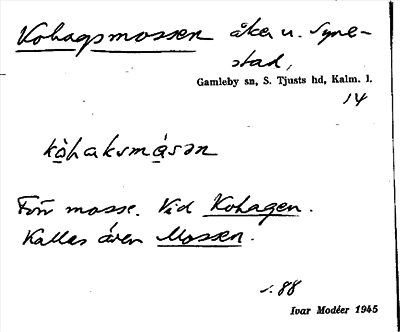 Kohagsmossen åker u. Syne-
stad,
Gamleby sn, S. Tjusts hd, Kalm. l.
14
kò̱haksmå̱sən
Förr mosse. Vid Kohagen.
Kallas även Mossen.
s. 88
Ivar Modéer 1945